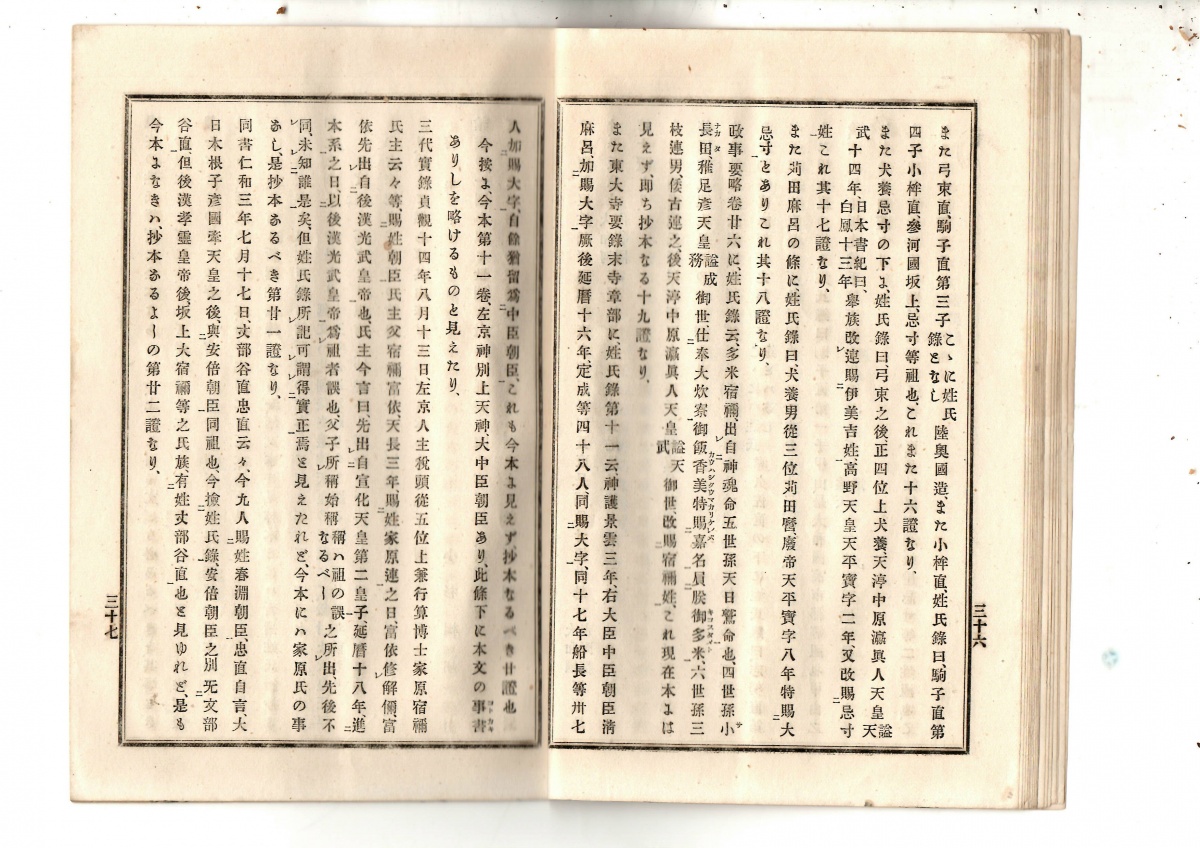 また弓束直、駒子直第三子こゝに姓氏錄となし陸奥國造、また小桙直、姓氏錄曰、駒子直第
四子小桙直、參河國坂上忌寸等祖也、これまた十六證なり、
また犬養忌寸の下よ、姓氏錄曰弓束之後正四位上犬養、天渟中原瀛眞人天皇謚天
武十四年、日本書紀曰、白鳳十三年、擧族改連賜伊美吉姓、高野天皇天平寶字二年、又改賜忌寸
姓これ其十七證なり、
また苅田麻呂の條に、姓氏錄曰犬養男從三位苅田麿、廢帝天平寶字八年特賜大
忌寸とありこれ其十八證なり、
政事要略卷廿六に、姓氏錄云、多米宿禰、出自神魂命五世孫天日鷲命也、四世孫小
長田、稚足彥天皇謚成務御世仕奉大炊寮御飯香美特賜嘉名員脵御多米、六世孫三
枝連男倭古連之後、天渟中原瀛眞人天皇謚天武御世、改賜宿禰姓、これ現在本よは
見えず、即ち抄本なる十九證なり、
また東大寺要錄末寺章部に姓氏錄第十一云神護景雲三年、右大臣中臣朝臣淸
麻呂、加賜大字厥後延曆十六年、定成等四十八人同賜大字、同十七年船長等卅七
三十六
人加賜大字、自餘猶留爲中臣朝臣、これも今本よ見えず抄本なるべき廿證也
今按よ、今本第十一卷、左京神別上天神大中臣朝臣あり、此條下に本文の事書
ありしを略けるものと見えたり、
三代實錄貞觀十四年八月十三日、左京人主稅頭從五位上兼行算博士家原宿禰
氏主云々等、賜姓朝臣、氏主父宿禰富依、天長三年賜姓家原連之日、富依修解偁、富
依先出自後漢光武皇帝也氏主今言曰、先出自宣化天皇第二皇子、延曆十八年、進
本系之日、以後漢光武皇帝爲祖者誤也、父子所稱始稱稱ハ祖の誤なるべー之所出、先後不
同、未知誰是矣、但姓氏錄所記可謂得實正焉と見えたれど、今本にハ家原氏の事
あし、是抄本あるべき第廿一證なり、
同書仁和三年七月十七日、丈部谷直忠直云々、今九人賜姓春淵朝臣、忠直自言大
日本根子彥國牽天皇之後、與安倍朝臣同祖也、今撿姓氏錄安倍朝臣之別无文部
谷直、但後漢孝靈皇帝後、坂上大宿禰等之氏族、有姓丈部谷直也と見ゆれど、是も
今本よなきハ、抄本あるよーの第廿二證なり、
三十七